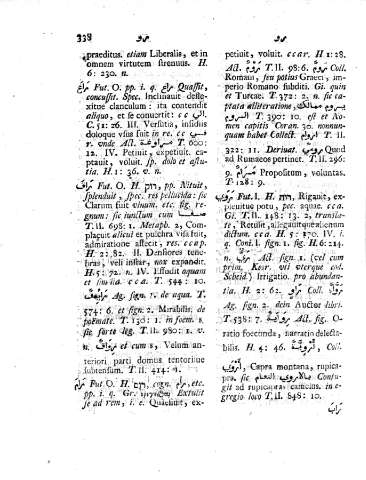 338
praeditus. etiam Liberalis, et in
omnem virtutem strenuus. H.
6: 230. n.
راغ Fut. O. pp. i. q. Quassit,
concussit. Spec. Inclinavit defle-
xitque clanculum: ita contendit
aliquo, et se convertit: cc الي.
C. 51: 26. III. Versutia, insidiis
doloque usus fuit in re. cc في
r. unde Act. T. 600:
12. IV. Petiuit, expetiuit, ca-
ptauit, voluit. sp. dolo et astu-
tia. H. 1: 36. v. n.
راق Fut. O. H. pp. Nituit,
splenduit, spec. res pellucida: sic
Clarum fuit vinum, etc. sig. re-
gnum: sic iunctum cum صفا
T. II. 698: 1. Metaph. 2, Com-
placuit alicui et pulchra visa fuit,
admiratione affecit, res. ccap.
H. 2: 82. II. Densiores tene-
bras, veli instar, nox expandit.
H. 5: 72. n. IV. Effodit aquam
et similia. cca. T. 544: 10.
Ag. sign. r. de aqua. T.
574: 6. et sign. 2. Mirabilis: de
poëmate. T. 130: 1. in foem. s.
sic forte Ag. T. II. 980: 1. v.
n. رواق et cum s, Velum an-
teriori parti domus tentoriiue
subtensum. T. II. 414: 4.
رام Fut. O. H. cogn. رام, etc.
pp. i. q. Gr. Extulit
se ad rem, i. e. Quaesiuit, ex-
petiuit, voluit. ccar. H. 1: 28.
Act. T. II. 98: 6. روم Coll.
Romani, seu potius Graeci, im-
perio Romano subditi. Gl. quin
et Turcae. T. 372: 2. n. sic ca-
ptata alliteratione,
الروم T. 390: 10. est et No-
men capitis Coran. 30. nonnun-
quam habet Collect. اروام T. II.
322: 11. Derivat. Quod
ad Rumaeos pertinet. T. II. 296:
9. مرام Propositum, voluntas.
T. 128: 9.
Fut. I. H. Rigauit, ex-
pleuitue potu, pec. aquae. cca.
Gl. T. II. 148: 13. 2, transla-
te, Retulit, allegauitque alienum
dictum. cca. p. H. 5: 370. IV. i.
q. Coni. I. sign. fig. H. 6: 214.
n. Act. sign. 1. (vel cum
prim. Koer. vti vterque cod.
Scheid.) Irrigatio. pro abundan-
tia. H. 2: 62. Coll.
Ag. sign. 2. dein Auctor libri.
T. 538: 7. رواية Act. fig. O-
ratio foecunda, narratio delecta-
bilis. H. 4: 46. Coll.
Capra montana, rupica-
pra. sic النعام Confugit
ad rupicapras camelus. in e-
gregio loco T. II. 848: 10.
راب